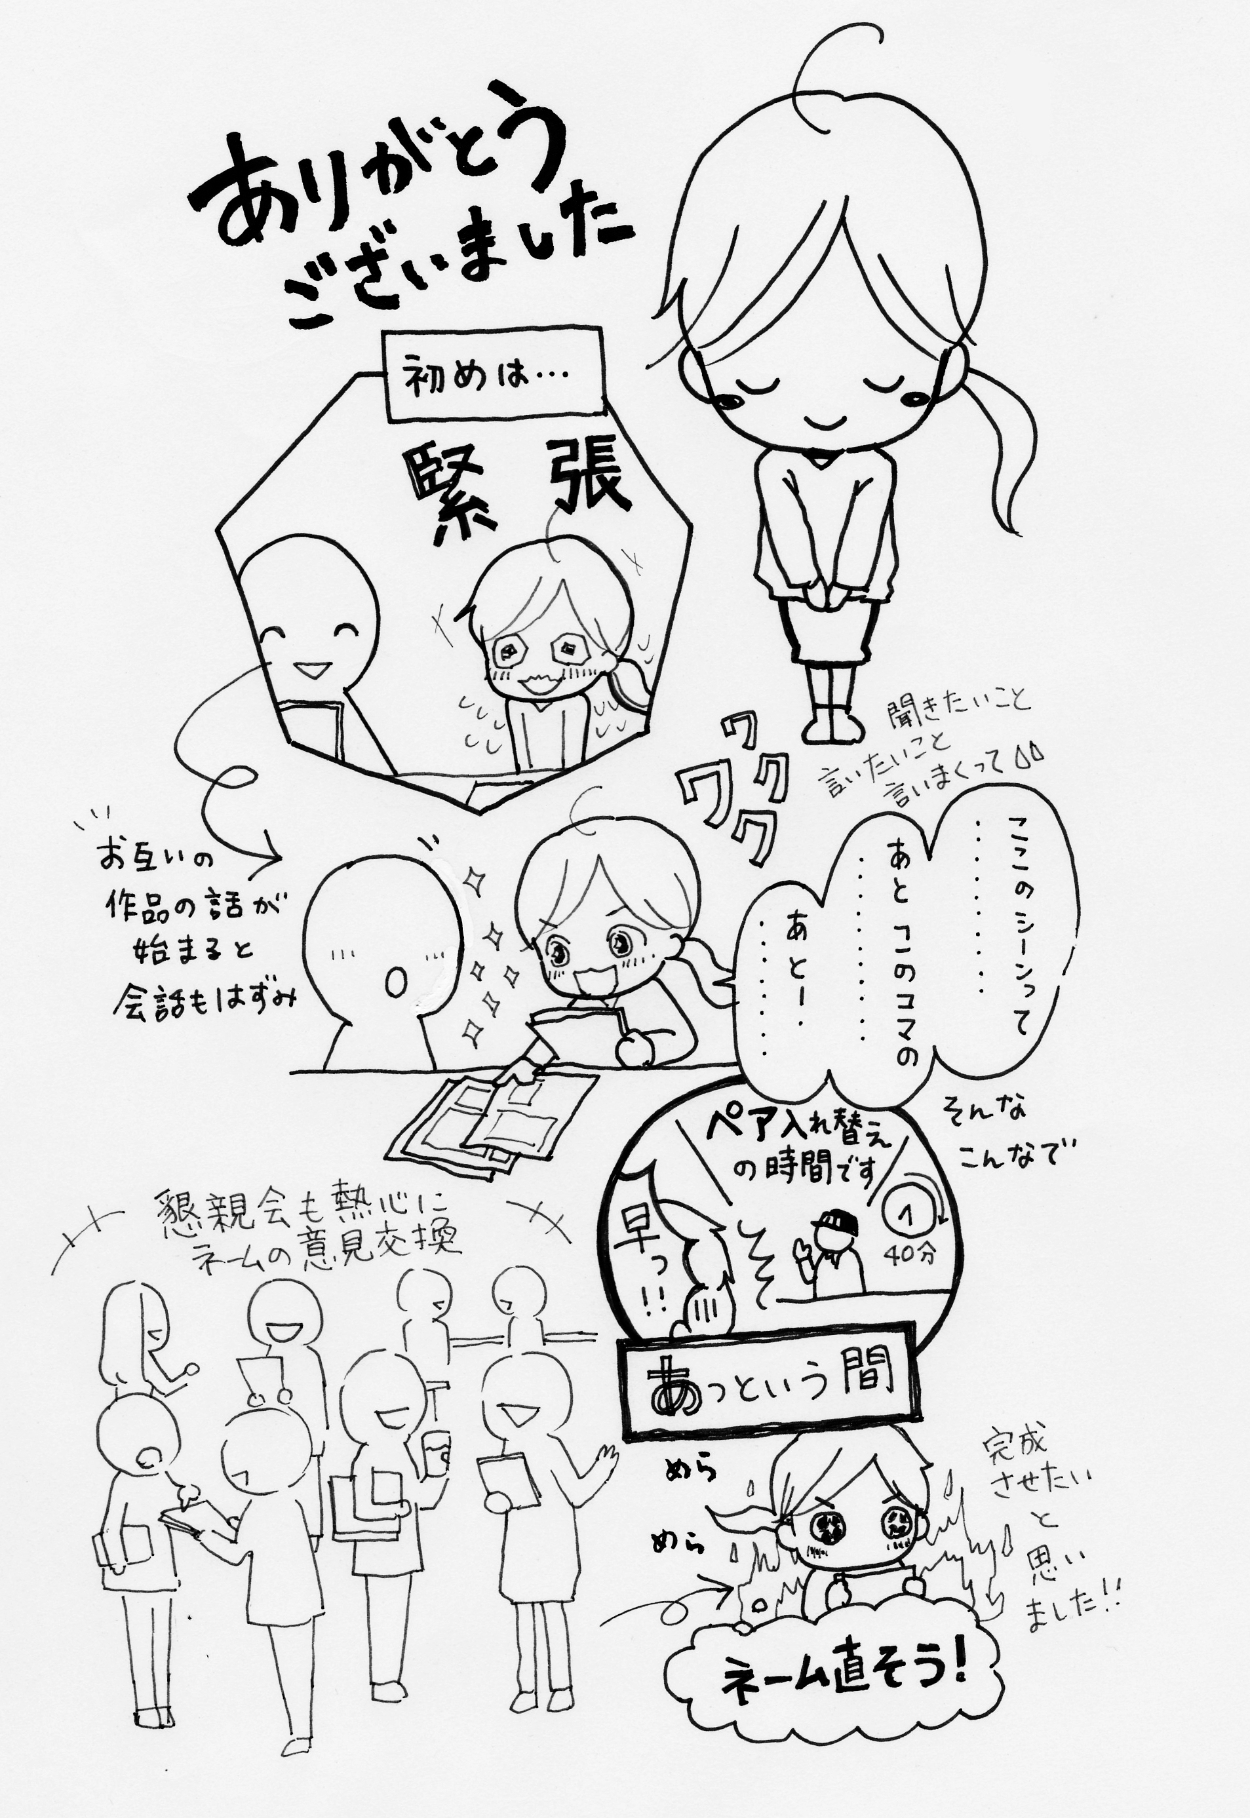 ありがとう
ございました
初めは…
緊張
お互いの
作品の話が
始まると
会話もはずみ
ワクワク
聞きたいこと
言いたいこと
言いまくって
ここのシーンって
………
あとこのコマの
………
あとー
………
そんな
こんなで
ペア入れ替え
の時間です
40分
早っ!!
あっという間
懇親会も熱心に
ネームの意見交換
めら
めら
完成
させたい
と
思い
ました!!
ネーム直そう!